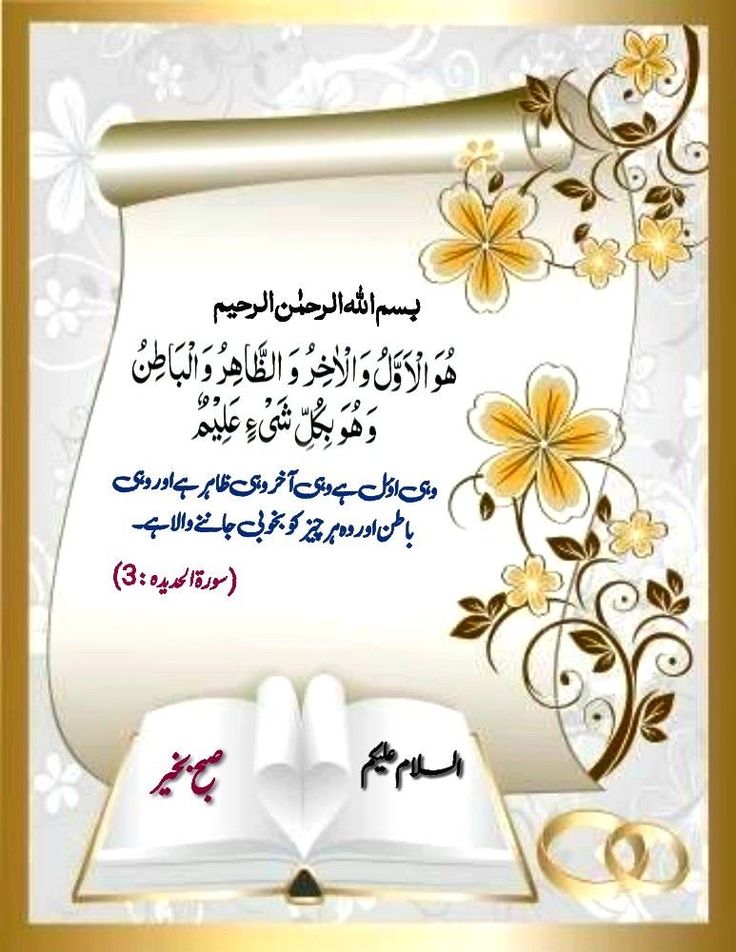 بسم اللہ الرحمٰن الرحیم
هُوَ الْاَوَّلُ وَ الْاٰخِرُ وَ الظَّاهِرُ وَ الْبَاطِنُ
وَ هُوَ بِكُلِّ شَیْءٍ عَلِیْمٌ
وہی اوّل ہے وہی آخر وہی ظاہر ہے اور وہی
باطن اور وہ ہر چیز کو بخوبی جاننے والا ہے۔
(سورۃ الحدیدہ : 3)
السلام علیکم
صبح بخیر